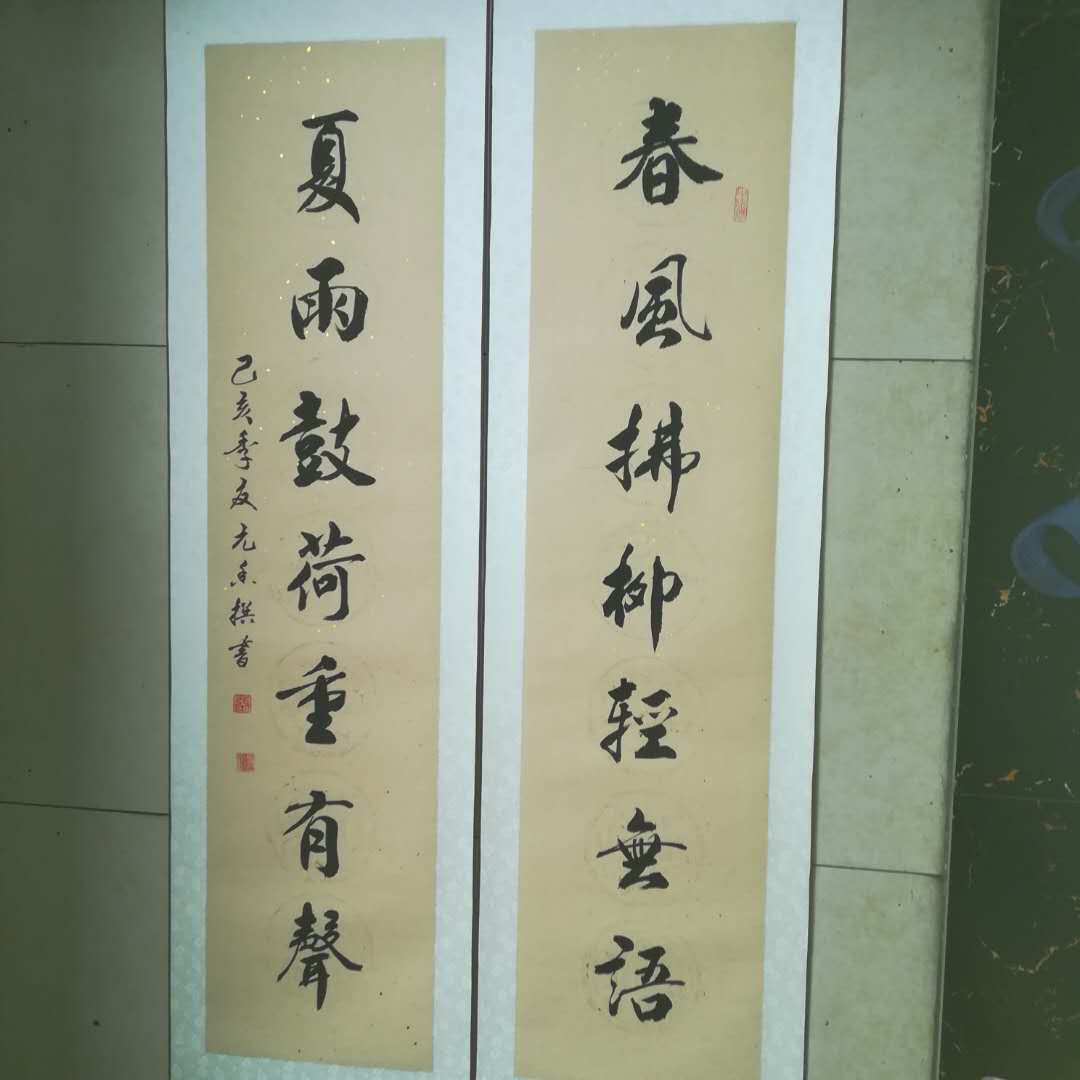 春風拂柳輕無語
夏雨鼓荷重有聲
己亥季夏元香撰書